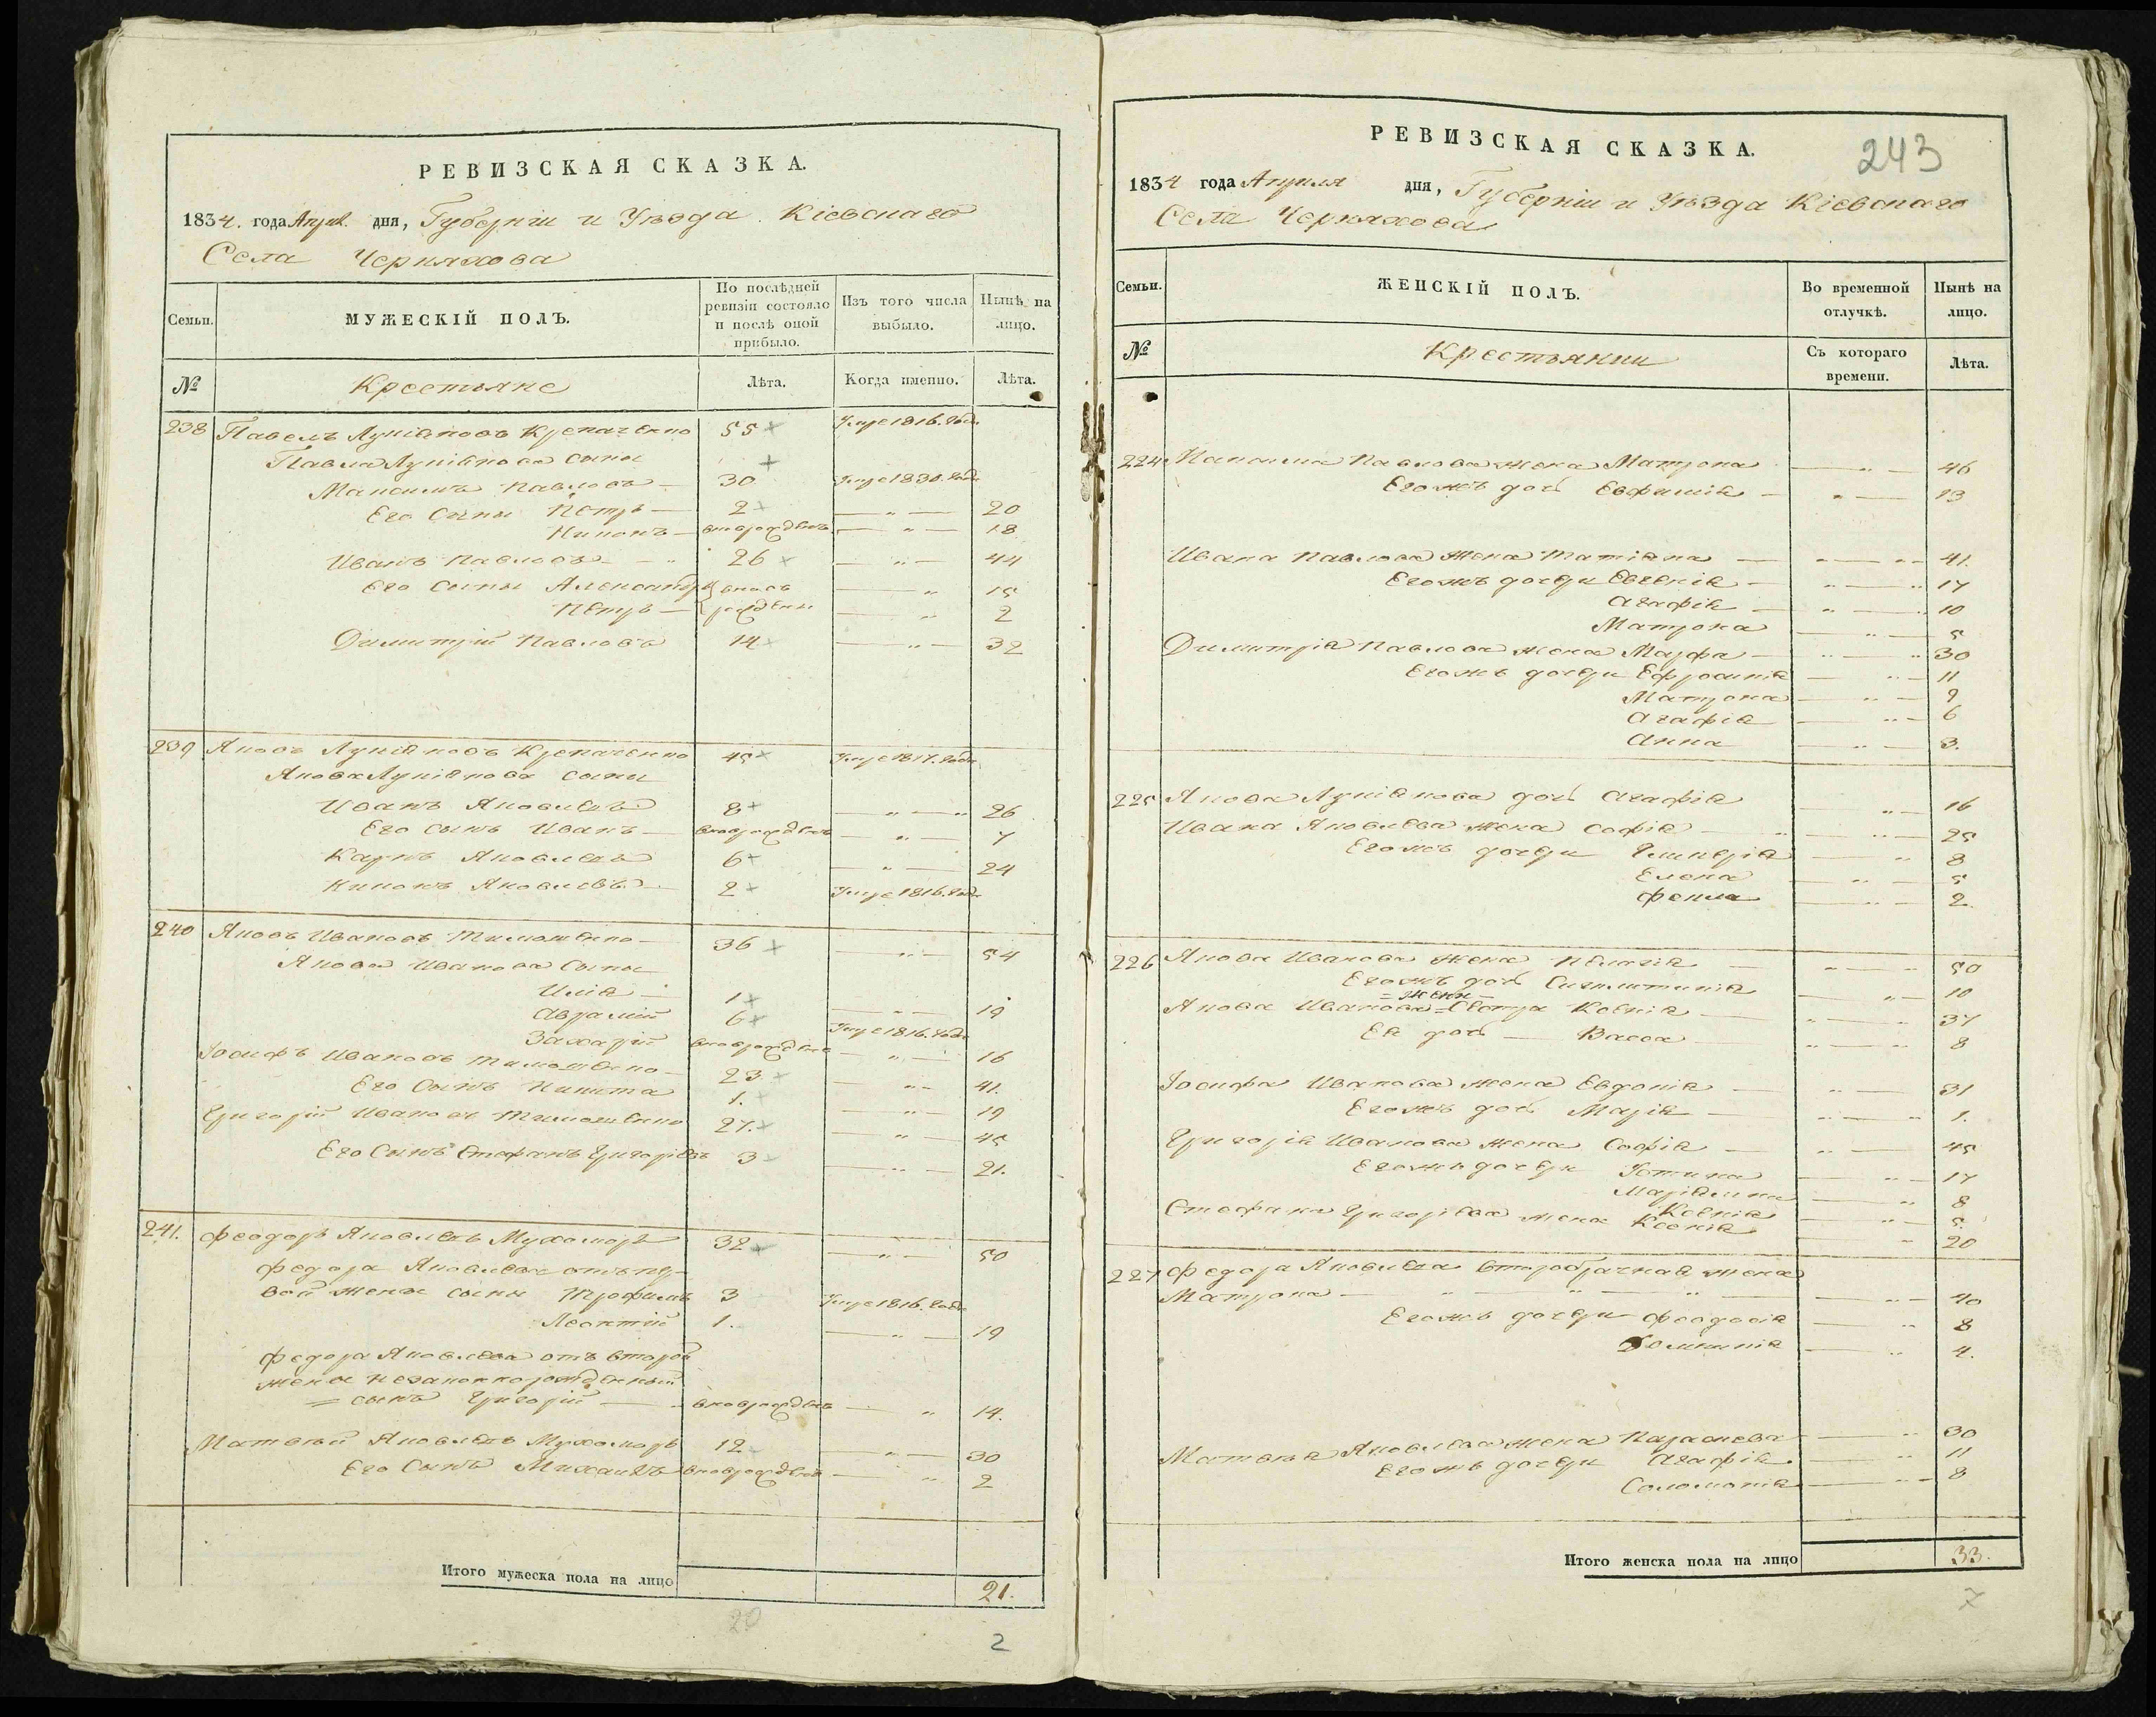 РЕВИЗСКАЯ СКАЗКА.
1834. года Апрѣл. дня, Губерніи и Уѣзда Кіевскаго
Села Черняхова
Семьи.
МУЖЕСКІЙ ПОЛЪ.
По послѣдней ревизіи состояло и послѣ оной прибыло.
Изъ того числа выбыло.
Нынѣ на лицо.
№
Крестьяне
Лѣта.
Когда именно.
Лѣта.
238 Павелъ Лукіяновъ 55 Умре 1816. года
Павла Лукіянова сыны
Максимъ Павловъ — 30 Умре 1830. года
Его сыны Петръ — 2 — „ — 20
Никонъ — вновьрожденъ — „ — 18
Иванъ Павловъ — „ 26 — „ — 44
Его сыны Александръ вновь — „ 15
Петръ — рождены — „ 2
Димитрій Павловъ 14 — „ — 32
239 Яковъ Лукіяновъ 45 Умре 1817. года
Якова Лукіянова сыны
Иванъ Яковлевъ 8 — „ — „ 26
Его сынъ Иванъ — вновьрожденъ — „ — 7
Карпъ Яковлевъ 6 — „ — 24
Никонъ Яковлевъ 2 Умре 1816. года
240 Яковъ Ивановъ Тимошенко — 36 — „ — 54
Якова Иванова сыны
Илія — 1 — „ — 19
Аврамій 6 Умре 1816. года
Захарій вновьрожденъ — „ — 16
Іосифъ Ивановъ Тимошенко — 23 — „ — 41.
Его сынъ Никита 1. — „ — 19
Григорій Ивановъ Тимошенко 27. — „ — 45
Его сынъ Стефанъ Григоріевъ 3 — „ — 21.
241. Феодоръ Яковлевъ Мухоморъ 32 — „ — 50
Федора Яковлева отъ пер-
вой жены сыны Трофимъ 3 Умре 1816. года
Леонтій 1. — „ — 19
Федора Яковлева отъ второй
жены незаконнорожденный
= сынъ Григорій — вновьрожденъ — „ 14.
Матвѣй Яковлевъ Мухоморъ 12 — „ — 30
Его сынъ Михаилъ вновьрожденъ — „ 2
Итого мужеска пола на лицо 21.
20
2
243
РЕВИЗСКАЯ СКАЗКА.
1834 года Апрѣля дня, Губерніи и Уѣзда Кіевскаго
Села Черняхова
Семьи.
ЖЕНСКІЙ ПОЛЪ.
Во временной отлучкѣ.
Нынѣ на лицо.
№
Крестьянки
Съ котораго времени.
Лѣта.
224 Максима Павлова жена Матрона — „ — 46
Егожъ дочь Евфимія — „ — 13
Ивана Павлова жена Татіяна — „ — 41.
Егожъ дочери Евгенія — „ — 17
Агафія — „ — 10
Матрона — „ — 5
Димитрія Павлова жена Марфа — „ — „ 30
Егожъ дочери Ефросинія — „ — 11
Матрона — „ — 9
Агафія — „ — 6
Анна — „ — 3.
225 Якова Лукіянова дочь Агафія — „ — 16
Ивана Яковлева жена Софія — „ — 25
Егожъ дочери Гликерія — „ 8
Елена — „ — 5
Фекла — „ — 2
226 Якова Иванова жена Пелагія — „ — „ 50
Егожъ дочь — „ — 10
= жены =
Якова Иванова = Сестра Ксенія — „ — „ 37
Ея дочь — Васса — „ — „ 8
Іосифа Иванова жена Евдокія — „ — 31
Егожъ дочь Марія — „ — „ 1.
Григорія Иванова жена Софія — „ — 45
Егожъ дочери Устина — „ — 17
Маріамна — „ 8
Ксенія — „ — 5.
Стефана Григоріева жена Ксенія — „ 20
227 Федора Яковлева второбрачная жена
Матрона — „ — „ — „ — 40
Егожъ дочери Феодосія — „ 8
Домникія — „ 4.
Матвѣя Яковлева жена Параскева — „ 30
Егожъ дочери Агафія. — „ 11
Соломонія — „ — 8
Итого женска пола на лицо 33.
7